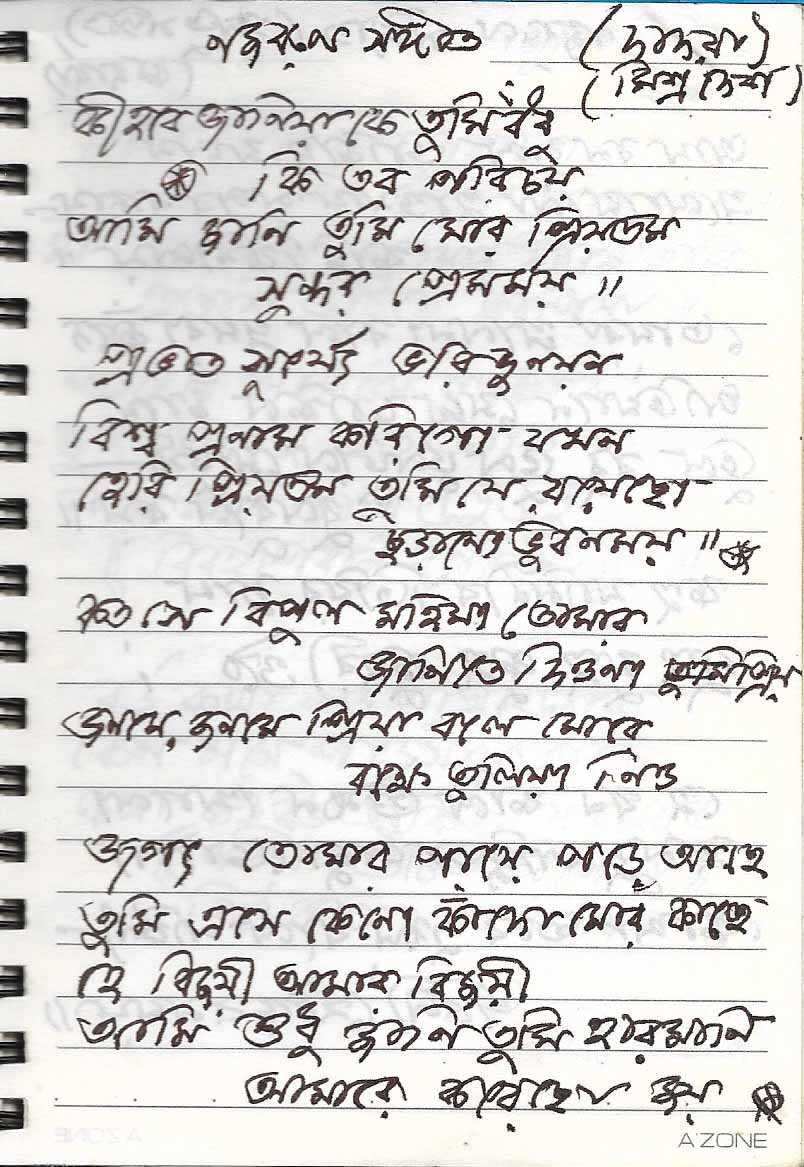 নজরুল সঙ্গীত (দাদরা)
(মিশ্র দেশ)
কী হবে জানিয়া কে তুমি বঁধু
কি তব পরিচয়
আমি জানি তুমি মোর প্রিয়তম
সুন্দর প্রেমময় ॥
প্রভাত সূর্য্যে ভরি দুনয়ন
বিশ্ব প্রণাম করিগো যখন
হেরি প্রিয়তম তুমি যে রয়েছো
ছড়ানো ভুবনময় ॥
কত সে বিপুল মহিমা তোমার
জানিতে দিওনা তুমি প্রিয়
জনমে জনমে প্রিয়া বলে মোরে
বক্ষে তুলিয়া নিও
জগৎ তোমার পায়ে পড়ে আছে
তুমি এসে কেনো কাঁদো মোর কাছে
হে বিজয়ী আমার বিজয়ী
আমি শুধু জানি তুমি হার মানি
আমারে করেছো জয়
A'ZONE